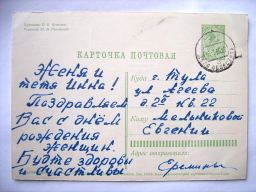 КАРТОЧКА ПОЧТОВАЯ
Женя и
тетя Инна!
Поздравляем
Вас с днём
рождения
женщин.
Будте здоровы
и счастливы!
Куда г. Тула
ул Агеева
д. 20 кв. 22
Кому Мельниковой
Евгении
Адрес отправителя: